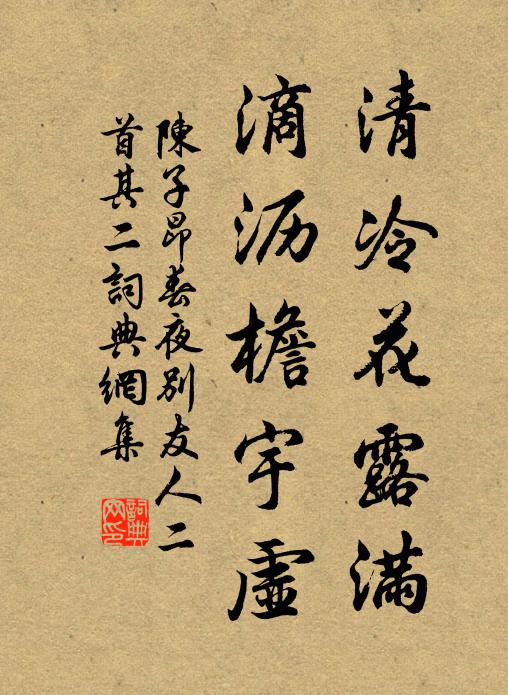 清冷花露满
滴沥檐宇虚
陳子昂春夜别友人二
首其二詞典網集
詞典网印